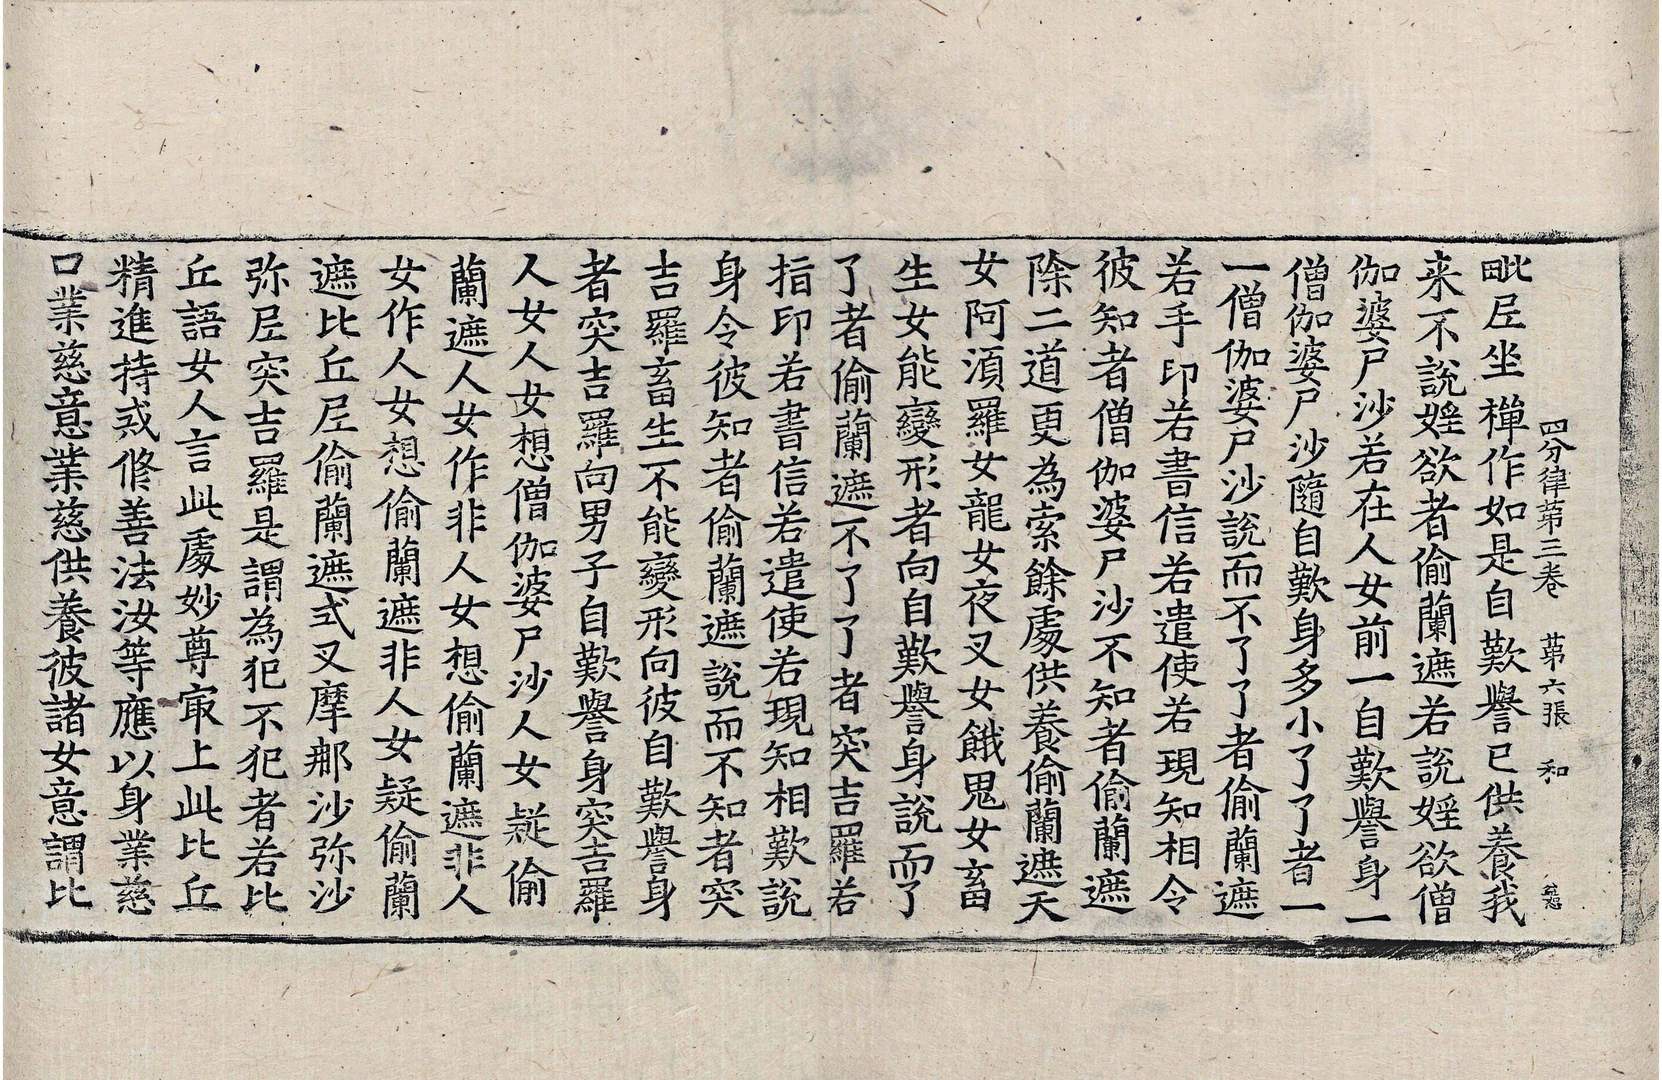 四分律第三卷 第六張 和
毗𡰱坐禪作如是自歎譽已供養我
来不說婬欲者偷蘭遮若說婬欲僧
伽婆尸沙若在人女前一自歎譽身一
僧伽婆尸沙隨自歎身多小了了者一
一僧伽婆尸沙說而不了了者偷蘭遮
若手印若書信若遣使若現知相令
彼知者僧伽婆尸沙不知者偷蘭遮
除二道更為索餘處供養偷蘭遮天
女阿湏羅女龍女夜叉女餓鬼女畜
生女能變形者向自歎譽身說而了
了者偷蘭遮不了了者突吉羅若
指印若書信若遣使若現知相歎說
身令彼知者偷蘭遮說而不知者突
吉羅畜生不能變形向彼自歎譽身
者突吉羅向男子自歎譽身突吉羅
人女人女想僧伽婆尸沙人女疑偷
蘭遮人女作非人女想偷蘭遮非人
女作人女想偷蘭遮非人女疑偷蘭
遮比丘𡰱偷蘭遮式叉摩那沙弥沙
弥𡰱突吉羅是謂為犯不犯者若比
丘語女人言此處妙尊㝡上此比丘
精進持戒脩善法汝等應以身業慈
口業慈意業慈供養彼諸女意謂比